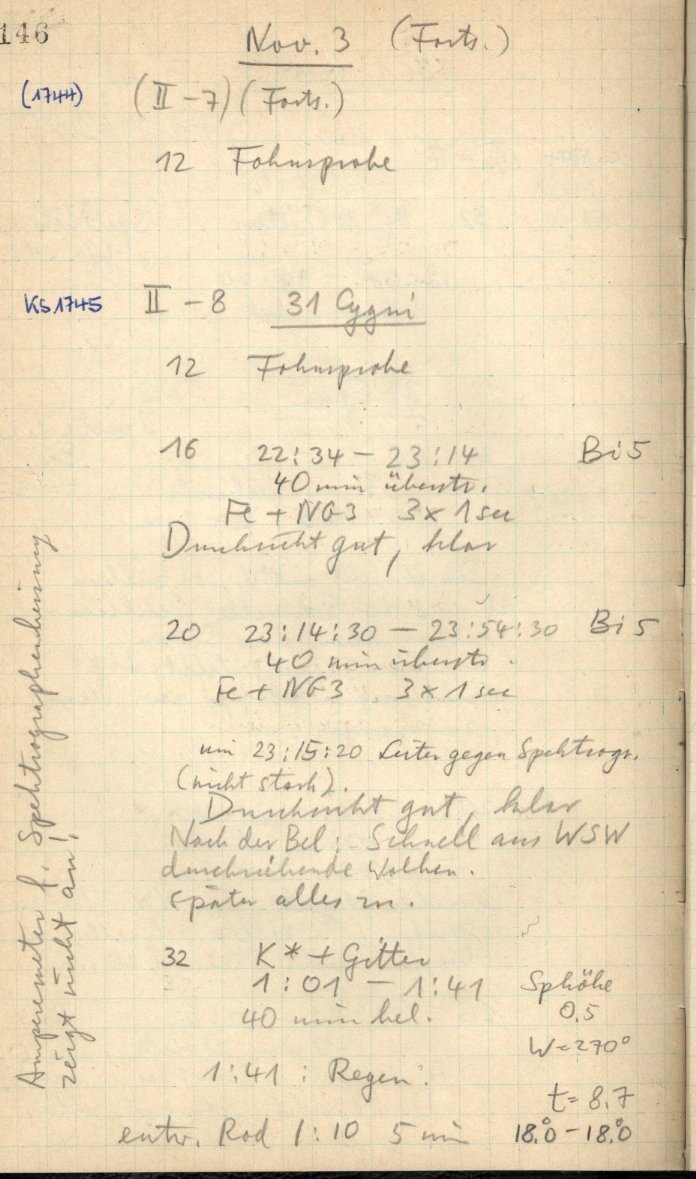 146
Nov. 3 (Forts.)
(1744) (II-7) (Forts.)
12 Fokusprobe
KS 1745 II-8 31 Cygni
12 Fokusprobe
16 22:34 - 23:14 Bi 5
40 min überstr.
Fe + NG3 3x1 sec
Durchsicht gut, klar
20 23:14:30 - 23:54:30 Bi 5
40 min überstr.
Fe + NG3 3x1 sec
um 23:15:20 Leiter gegen Spektrogr.
(nicht stark).
Durchsicht gut, klar
Nach der Bel: Schnell aus WSW
durchziehende Wolken.
später alles zu.
32 K* + Gitter
1:01 - 1:41 Sphöhe
40 min bel. 0,5
W=270°
1:41: Regen.
t=8,7
entw. Rod 1:10 5 min 18.°0-18.°0
Amperemeter f. Spektrographenheizung
zeigt nicht an!